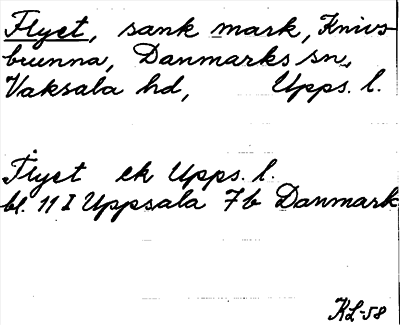 Flyet, sank mark, Knivs-
brunna, Danmarks sn,
Vaksala hd, Upps. l.
Flyet ek Upps. l.
bl. 11 I Uppsala 7b Danmark
KL-58